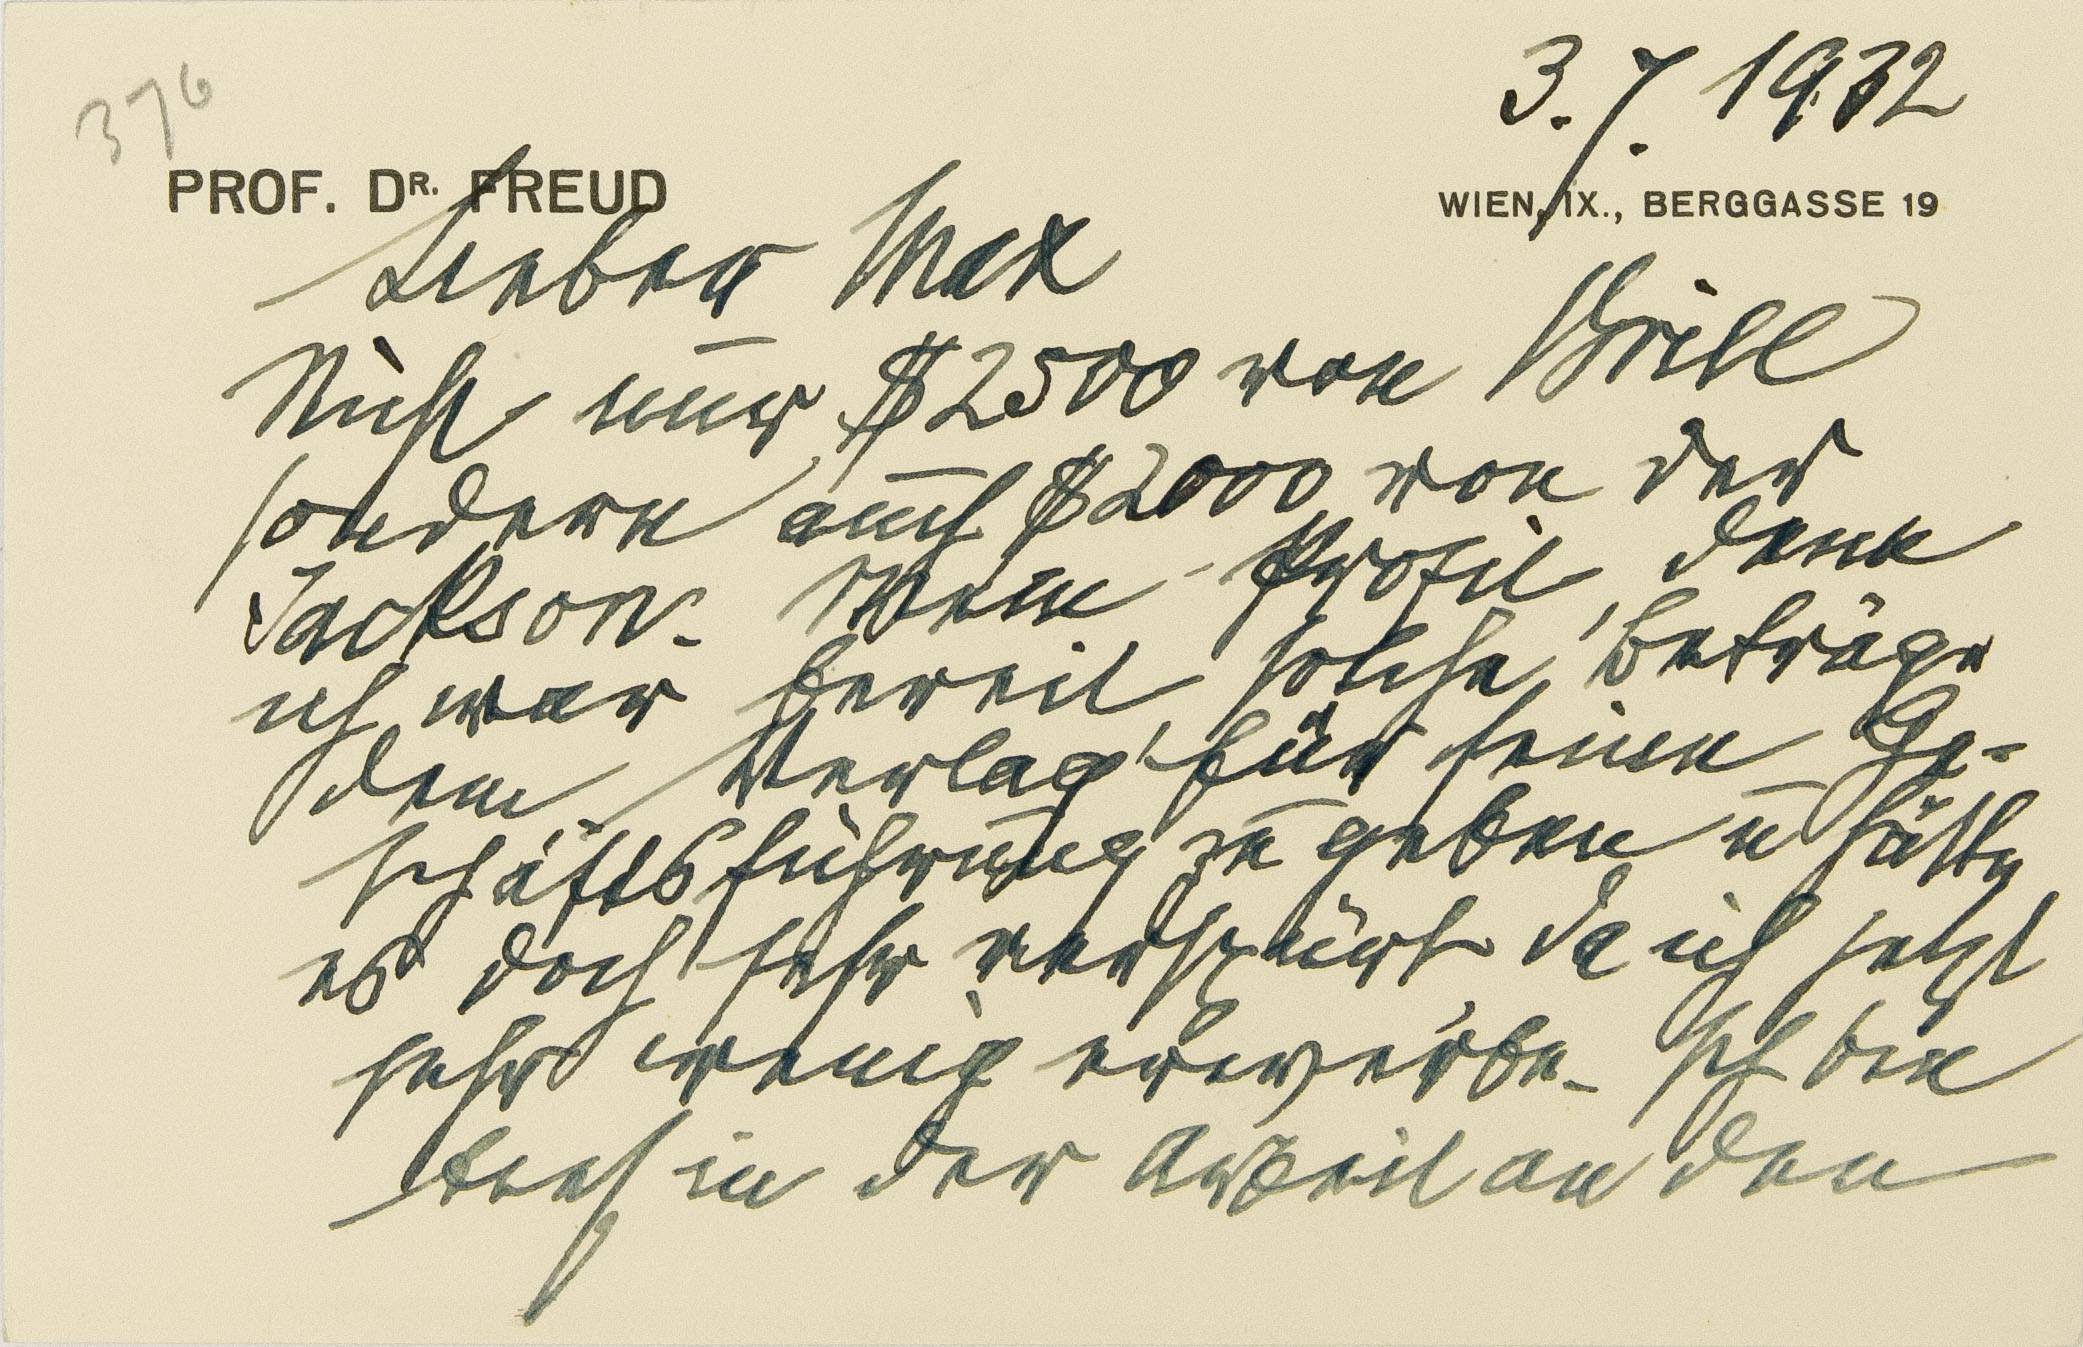 376
3.7.1932
PROF. DR. FREUD
WIEN, IX., BERGGASSE 19
Lieber Max
Nicht nur $2500 von Brill
sondern auch $2000 von der
Jackson. Mein Profit, denn
ich war bereit solche Beträge
dem Verlag für seine Ge-
schäftsführung zu geben u hätte
es doch sehr verspürt da ich jetzt
sehr wenig erwerbe. Ich bin
tief in der Arbeit an den